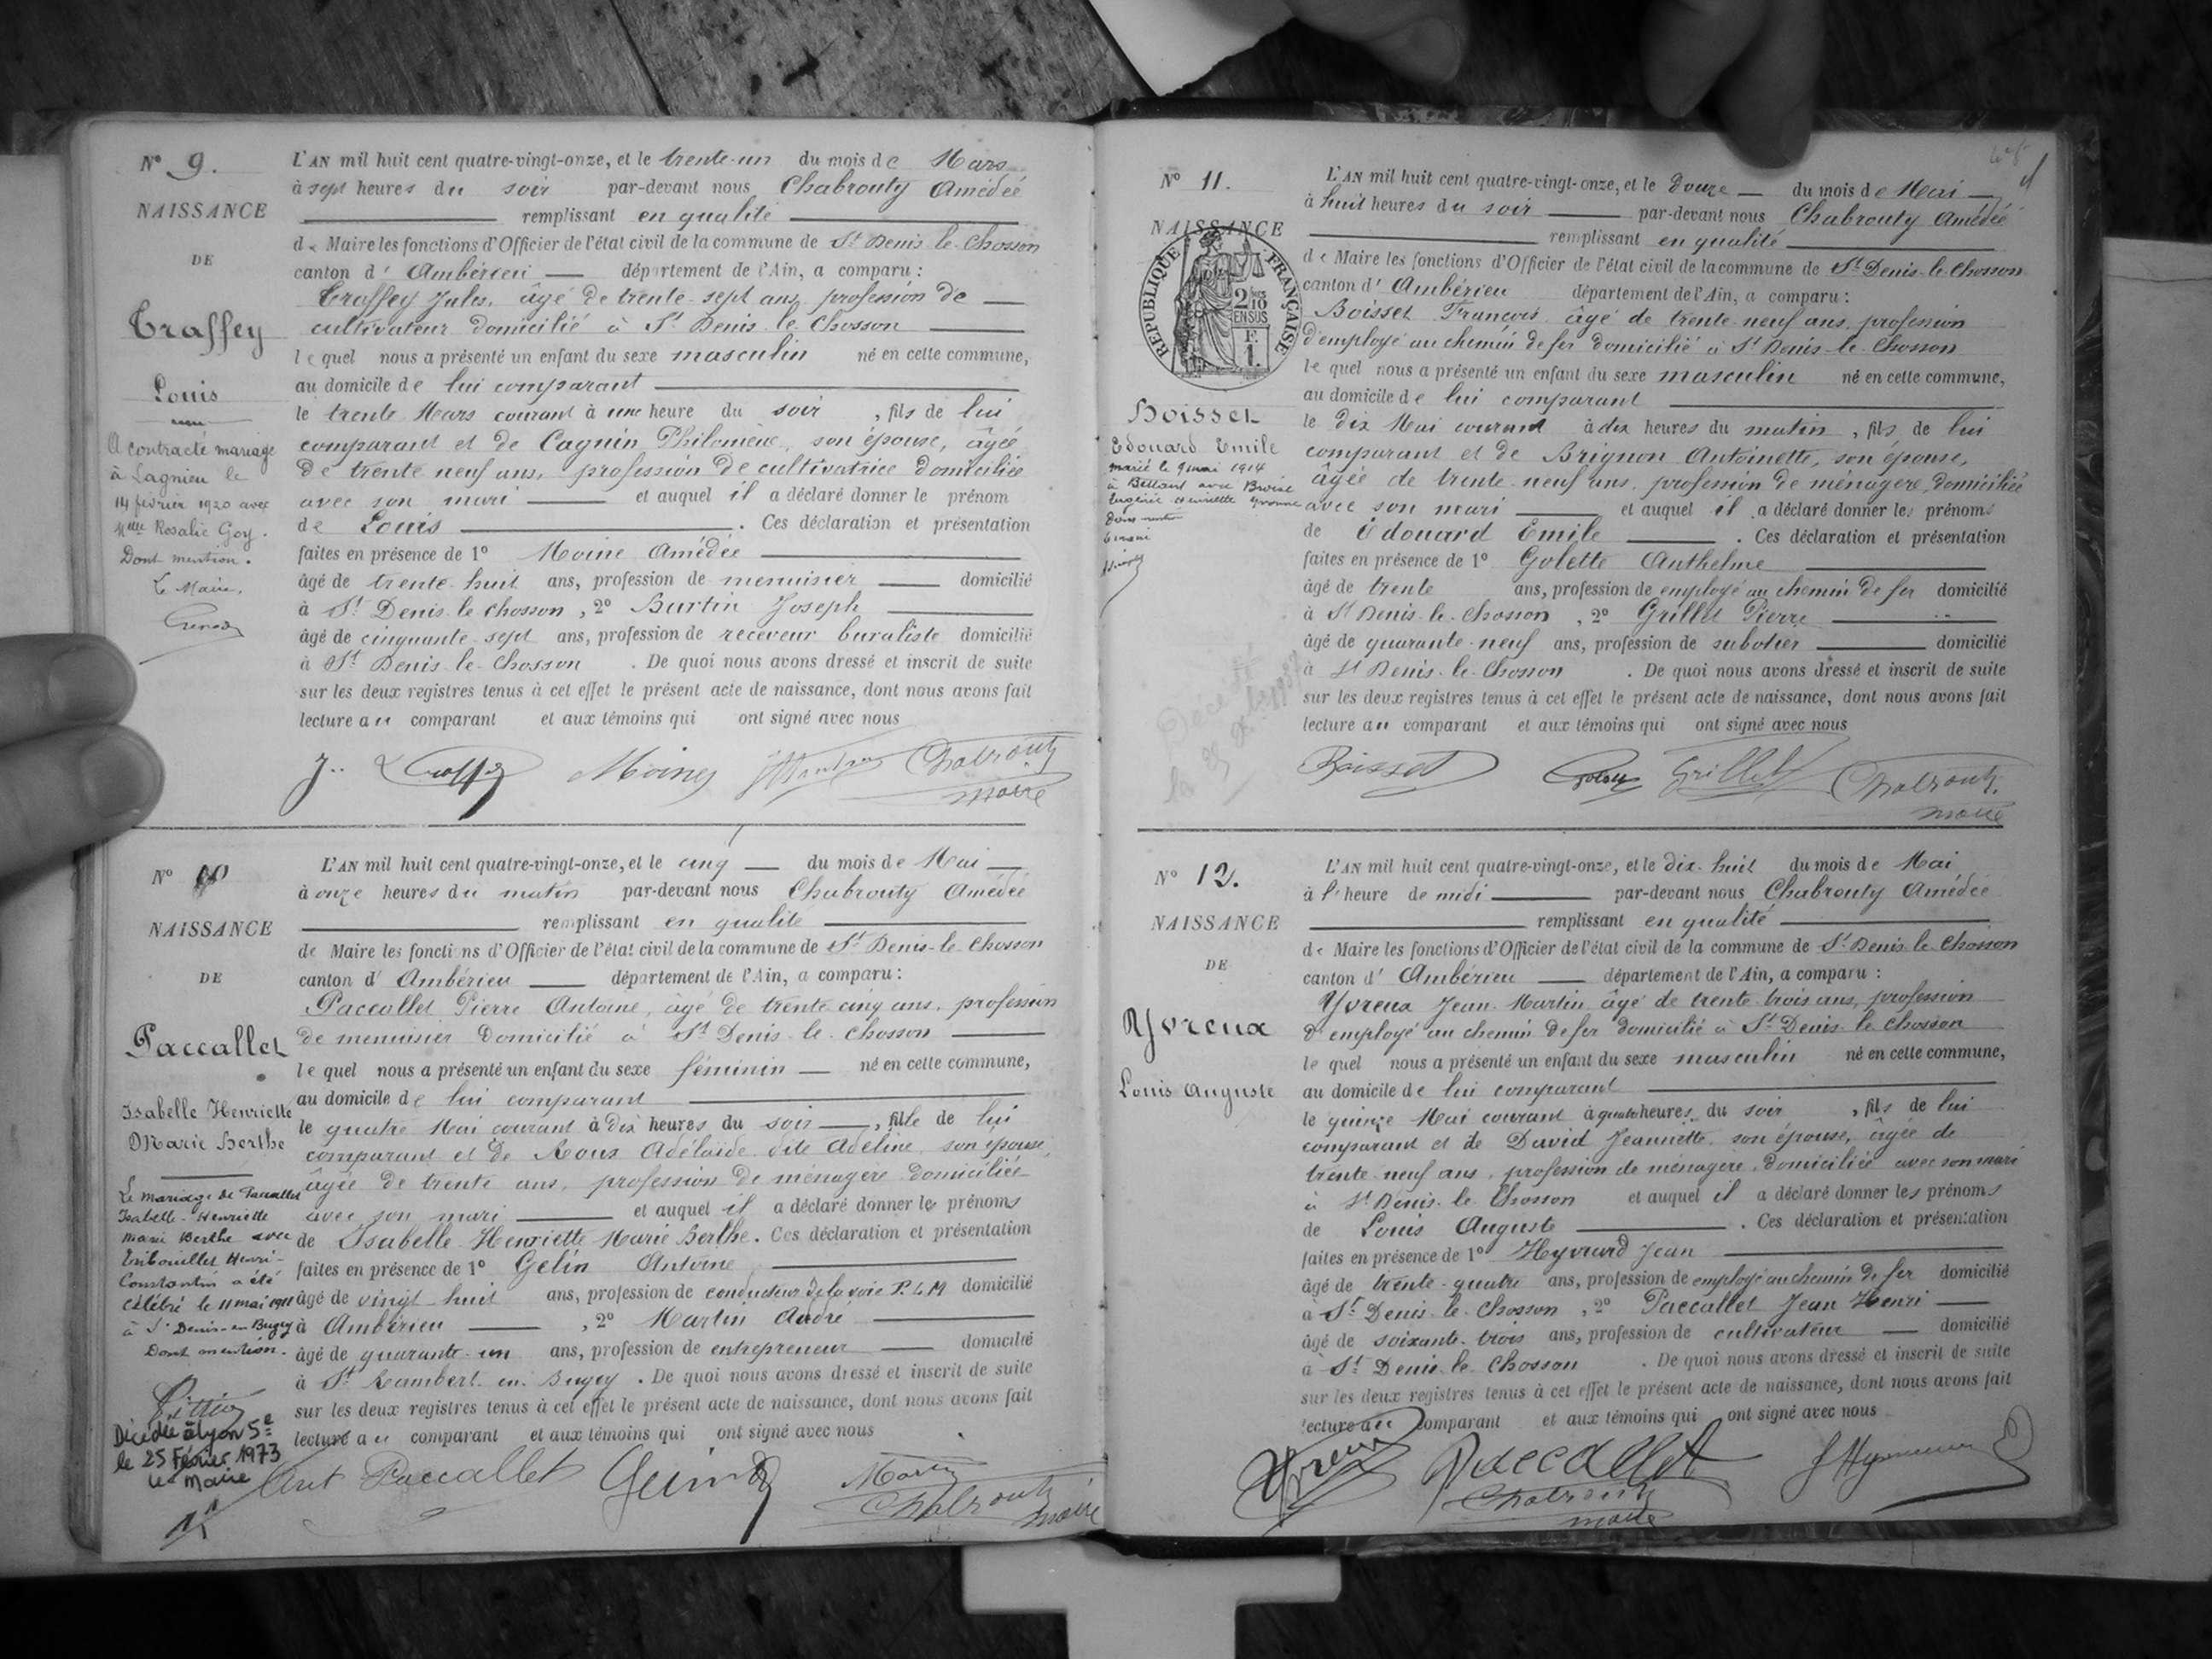 N° 9.
NAISSANCE
DE
Traffey
Louis
A contracté mariage
à Lagnieu le
14 février 1920 avec
Mlle Rosalie Goy.
Dont mention.
Le Maire,
L'AN mil huit cent quatre-vingt-onze, et le trente-un du mois de Mars
à sept heures du soir par-devant nous Chabrouty Amédée
remplissant en qualité
de Maire les fonctions d'Officier de l'état civil de la commune de St Denis-le-Chosson
canton d'Ambérieu département de l'Ain, a comparu :
Traffey Jules, âgé de trente-sept ans, profession de
cultivateur domicilié à St Denis-le-Chosson
lequel nous a présenté un enfant du sexe masculin né en cette commune,
au domicile de lui comparant
le trente Mars courant à une heure du soir, fils de lui
comparant et de Cagnin Philomène, son épouse, âgée
de trente neuf ans, profession de cultivatrice domiciliée
avec son mari et auquel il a déclaré donner le prénom
de Louis. Ces déclaration et présentation
faites en présence de 1° Moine Amédée
âgé de trente-huit ans, profession de menuisier domicilié
à St Denis-le-Chosson, 2° Burtin Joseph
âgé de cinquante-sept ans, profession de receveur buraliste domicilié
à St Denis-le-Chosson. De quoi nous avons dressé et inscrit de suite
sur les deux registres tenus à cet effet le présent acte de naissance, dont nous avons fait
lecture au comparant et aux témoins qui ont signé avec nous
J. Traffey Moine Chabrouty
maire
N° 10
NAISSANCE
DE
Paccallet
Isabelle Henriette
Marie Berthe
Le mariage de Paccallet
Isabelle-Henriette
Marie Berthe avec
Tribouillet Henri-
Constantin a été
célébré le 11 mai 1911
à St Denis-en-Bugey
Dont mention.
Décédée à Lyon 5e
le 25 Février 1973
Le Maire
L'AN mil huit cent quatre-vingt-onze, et le cinq du mois de Mai
à onze heures du matin par-devant nous Chabrouty Amédée
remplissant en qualité
de Maire les fonctions d'Officier de l'état civil de la commune de St Denis-le-Chosson
canton d'Ambérieu département de l'Ain, a comparu :
Paccallet Pierre Antoine, âgé de trente-cinq ans, profession
de menuisier domicilié à St Denis-le-Chosson
lequel nous a présenté un enfant du sexe féminin né en cette commune,
au domicile de lui comparant
le quatre Mai courant à dix heures du soir, fille de lui
comparant et de Roux Adélaïde dite Adeline, son épouse,
âgée de trente ans, profession de ménagère domiciliée
avec son mari et auquel il a déclaré donner les prénoms
de Isabelle Henriette Marie Berthe. Ces déclaration et présentation
faites en présence de 1° Gelin Antoine
âgé de vingt-huit ans, profession de conducteur de la voie P.L.M domicilié
à Ambérieu, 2° Martin André
âgé de quarante-un ans, profession de entrepreneur domicilié
à St Rambert-en-Bugey. De quoi nous avons dressé et inscrit de suite
sur les deux registres tenus à cet effet le présent acte de naissance, dont nous avons fait
lecture au comparant et aux témoins qui ont signé avec nous
Ant Paccallet Martin
Chabrouty maire
N° 11.
NAISSANCE
RÉPUBLIQUE FRANÇAISE
2/10 EN SUS
F. 1.
Boisset
Edouard Emile
marié le 9 mai 1914
Dont mention
L'AN mil huit cent quatre-vingt-onze, et le douze du mois de Mai
à huit heures du soir par-devant nous Chabrouty Amédée
remplissant en qualité
de Maire les fonctions d'Officier de l'état civil de la commune de St Denis-le-Chosson
canton d'Ambérieu département de l'Ain, a comparu :
Boisset François âgé de trente-neuf ans, profession
d'employé au chemin de fer domicilié à St Denis-le-Chosson
lequel nous a présenté un enfant du sexe masculin né en cette commune,
au domicile de lui comparant
le dix Mai courant à dix heures du matin, fils de lui
comparant et de Brignon Antoinette, son épouse,
âgée de trente-neuf ans, profession de ménagère, domiciliée
avec son mari et auquel il a déclaré donner les prénoms
de Edouard Emile. Ces déclaration et présentation
faites en présence de 1° Golette Anthelme
âgé de trente ans, profession de employé au chemin de fer domicilié
à St Denis-le-Chosson, 2° Grillet Pierre
âgé de quarante-neuf ans, profession de sabotier domicilié
à St Denis-le-Chosson. De quoi nous avons dressé et inscrit de suite
sur les deux registres tenus à cet effet le présent acte de naissance, dont nous avons fait
lecture au comparant et aux témoins qui ont signé avec nous
Boisset Grillet Chabrouty
maire
N° 12.
NAISSANCE
DE
Yvreux
Louis Auguste
L'AN mil huit cent quatre-vingt-onze, et le dix-huit du mois de Mai
à l'heure de midi par-devant nous Chabrouty Amédée
remplissant en qualité
de Maire les fonctions d'Officier de l'état civil de la commune de St Denis-le-Chosson
canton d'Ambérieu département de l'Ain, a comparu :
Yvreux Jean-Martin âgé de trente-trois ans, profession
d'employé au chemin de fer domicilié à St Denis-le-Chosson
lequel nous a présenté un enfant du sexe masculin né en cette commune,
au domicile de lui comparant
le quinze Mai courant à quatre heures du soir, fils de lui
comparant et de David Jeannette, son épouse, âgée de
trente-neuf ans, profession de ménagère, domiciliée avec son mari
à St Denis-le-Chosson et auquel il a déclaré donner les prénoms
de Louis Auguste. Ces déclaration et présentation
faites en présence de 1° Heyvrard Jean
âgé de trente-quatre ans, profession de employé au chemin de fer domicilié
à St Denis-le-Chosson, 2° Paccallet Jean Henri
âgé de soixante-trois ans, profession de cultivateur domicilié
à St Denis-le-Chosson. De quoi nous avons dressé et inscrit de suite
sur les deux registres tenus à cet effet le présent acte de naissance, dont nous avons fait
lecture au comparant et aux témoins qui ont signé avec nous
Yvreux Paccallet
Chabrouty
maire